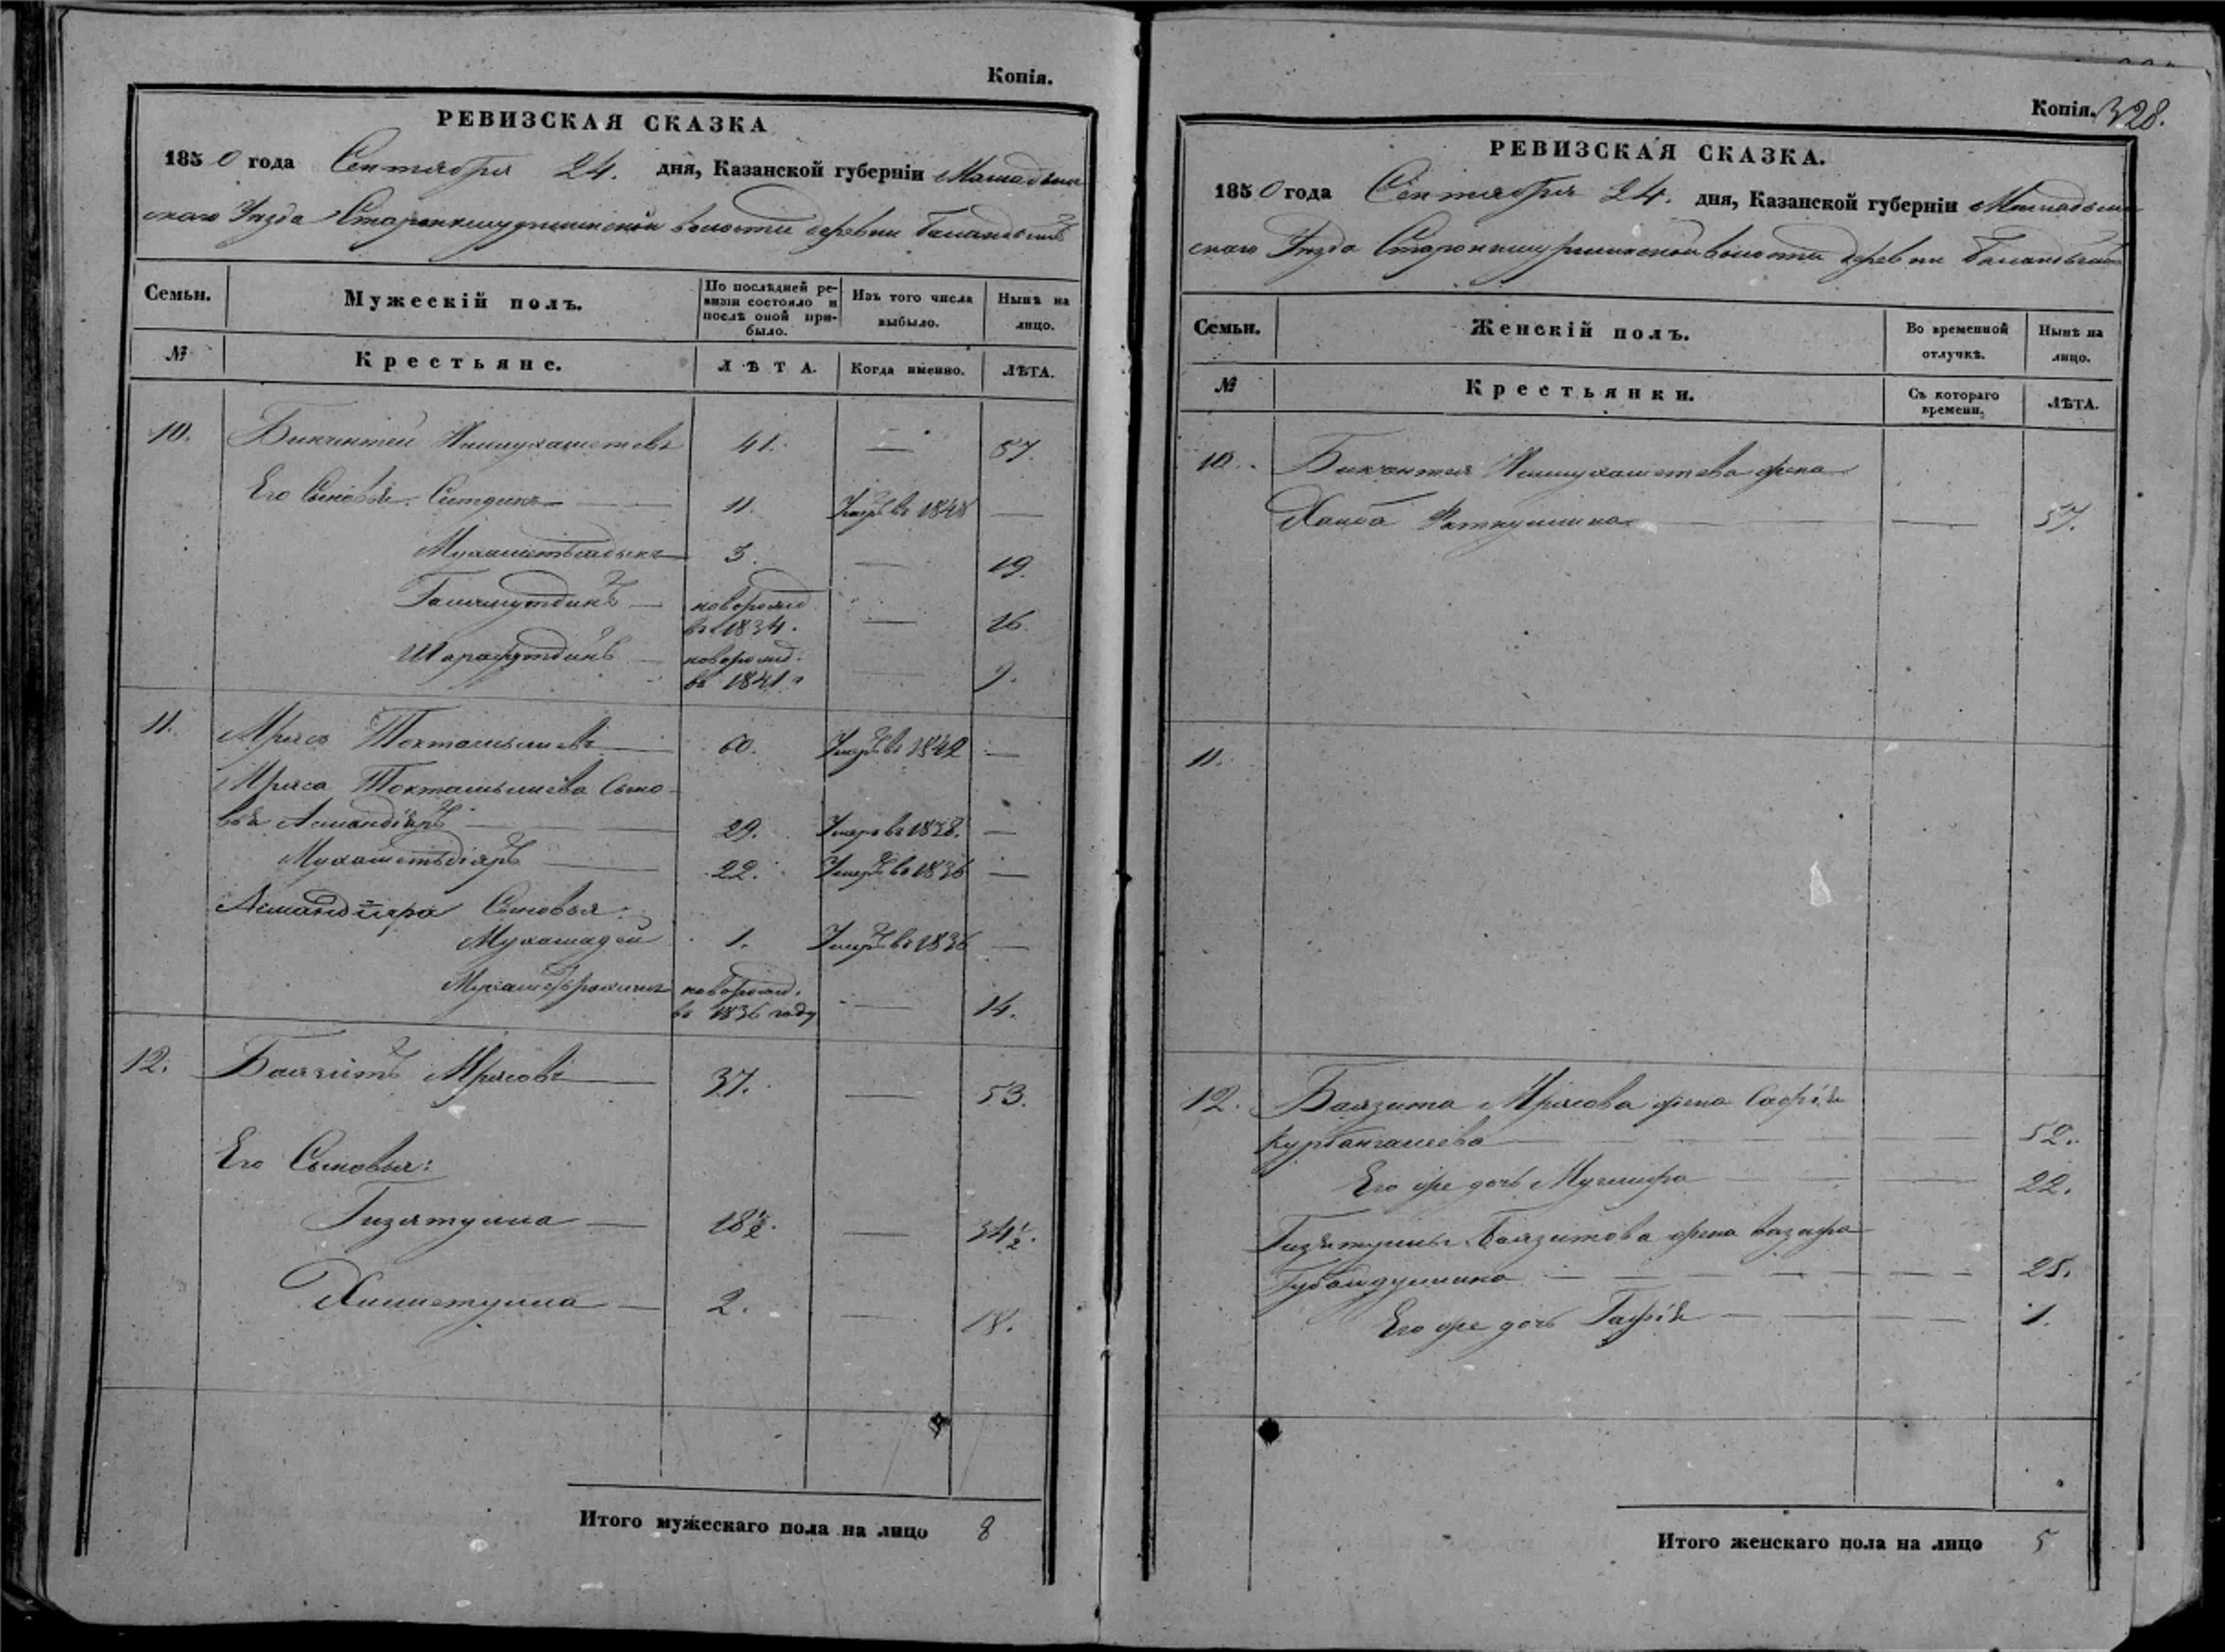 Копія.
РЕВИЗСКАЯ СКАЗКА
1850 года Сентября 24. дня, Казанской губерніи Мамадыш
скаго Уѣзда волости деревни
Семьи. Мужескій полъ. По послѣдней ревизіи состояло и послѣ оной прибыло. Изъ того числа выбыло. Нынѣ на лицо.
№ Крестьяне. ЛѢТА. Когда именно. ЛѢТА.
10. Бикчентей Ишмухаметевъ 41. — 57.
Его Сыновья: Ситдикъ — 11. Умеръ въ 1848 —
Мухаметьсадыкъ 3. — 19.
Галямутдинъ — новорожд.
въ 1834. — 16.
Шарафутдинъ — новорожд.
въ 1841. — 9.
11. Мрясъ Тохтамышевъ 60. Умеръ въ 1842 —
Мряса Тохтамышева Сыно-
вья Асмандіяръ — 29. Умеръ въ 1838. —
Мухаметьдіяръ — 22. Умеръ въ 1836 —
Асмандіяра Сыновья:
Мухамадей 1. Умеръ въ 1836 —
Мухаметьрахимъ новорожд.
въ 1836 году — 14.
12. Баязитъ Мрясовъ 37. — 53.
Его Сыновья:
Гизятулла — 18½. — 34½.
Хисметулла — 2. — 18.
Итого мужескаго пола на лицо 8
Копія. 328.
РЕВИЗСКАЯ СКАЗКА.
1850 года Сентября 24. дня, Казанской губерніи Мамадыш
скаго Уѣзда волости деревни
Семьи. Женскій полъ. Во временной отлучкѣ. Нынѣ на лицо.
№ Крестьянки. Съ котораго времени. ЛѢТА.
10. Бикчентея Ишмухаметева жена
Хабиба Раткуллина — — 57.
11.
12. Баязита Мрясова жена Сафія
Курбангалеева — — 52.
Его же дочь — — 22.
Гизятуллы Баязитова жена
Губайдуллина — — 25.
Его же дочь Гафія — — 1.
Итого женскаго пола на лицо 5